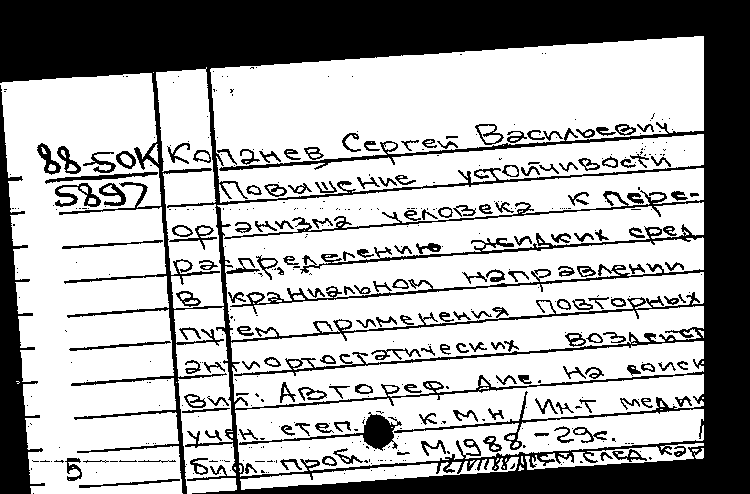 88-50К Копанев Сергей Васильевич
5897 Повышение устойчивости
организма человека к пере-
распределению жидких сред
в краниальном направлении
путем применения повторных
антиортостатических воздейст
вий: Автореф. дис. на соиск
учен. степ. к.м.н. / Ин-т мед.
биол. пробл. - М., 1988. - 29с.
5 след. кар